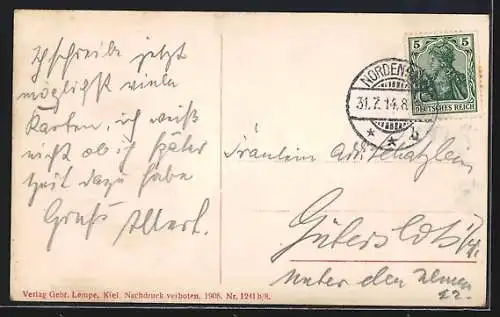 Ich schreibe jetzt
möglichst viele
Karten, ich weiß
nicht ob ich später
Zeit dazu habe
Gruß Albert.
5 5
DEUTSCHES REICH
31.7.14.8
* * b
Fräulein
Gütersloh i/W.
Unter den Ulmen
22.
Verlag Gebr. Lempe, Kiel. Nachdruck verboten. 1908. Nr. 1241 b/8.